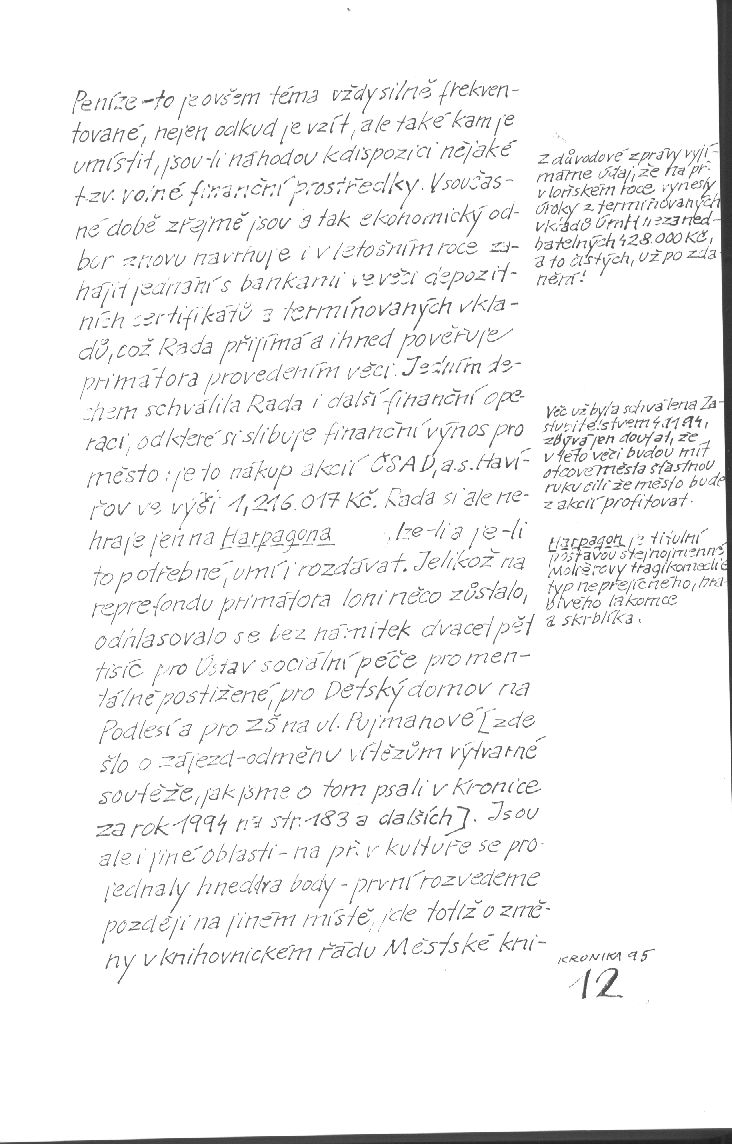 Peníze - to je ovšem téma vždy silně frekven-
tované, nejen odkud je vzít, ale také kam je
umístit, jsou-li náhodou k dispozici nějaké
tzv. volné finanční prostředky. V součas-
né době zřejmě jsou a tak ekonomický od-
bor znovu navrhuje i v letošním roce za-
hájit jednání s bankami ve věci depozit-
ních certifikátů a termínovaných vkla-
dů, což Rada přijímá a ihned pověřuje
primátora provedením věci. Jedním de-
chem schválila Rada i další finanční ope-
raci, od které si slibuje finanční výnos pro
město: je to nákup akcií ČSAD, a.s. Haví-
řov ve výši 1,216.017 Kč. Rada si ale ne-
hraje jen na Harpagona , lze-li a je-li
to potřebné, umí i rozdávat. Jelikož na
reprefondu primátora loni něco zůstalo,
odhlasovalo se bez námitek dvacet pět
tisíc pro Ústav sociální péče pro men-
tálně postižené, pro Dětský domov na
Podlesí a pro ZŠ na ul. Pujmanové [zde
šlo o zájezd-odměnu vítězům výtvarné
soutěže, jak jsme o tom psali v Kronice
za rok 1994 na str. 183 a dalších]. Jsou
ale i jiné oblasti - na př. v kultuře se pro-
jednaly hned dva body - první rozvedeme
později na jiném místě, jde totiž o změ-
ny v knihovnickém řádu Městské kni-
Z důvodové zprávy vyjí-
máme údaj, že na př.
v loňském roce vynesly
úroky z termínovaných
vkladů ÚmH nezaned-
batelných 428.000 Kč,
a to čistých, už po zda-
nění!
Věc už byla schválena Za-
stupitelstvem 4.11.94,
zbývá jen doufat, že
v této věci budou mít
otcové města šťastnou
ruku čili že město bude
z akcií profitovat.
Harpagon je titulní
postavou stejnojmenné
Moliérovy tragikomedie
typ nepřejícného, hra-
bivého lakomce
a skrblíka.
KRONIKA 95
12